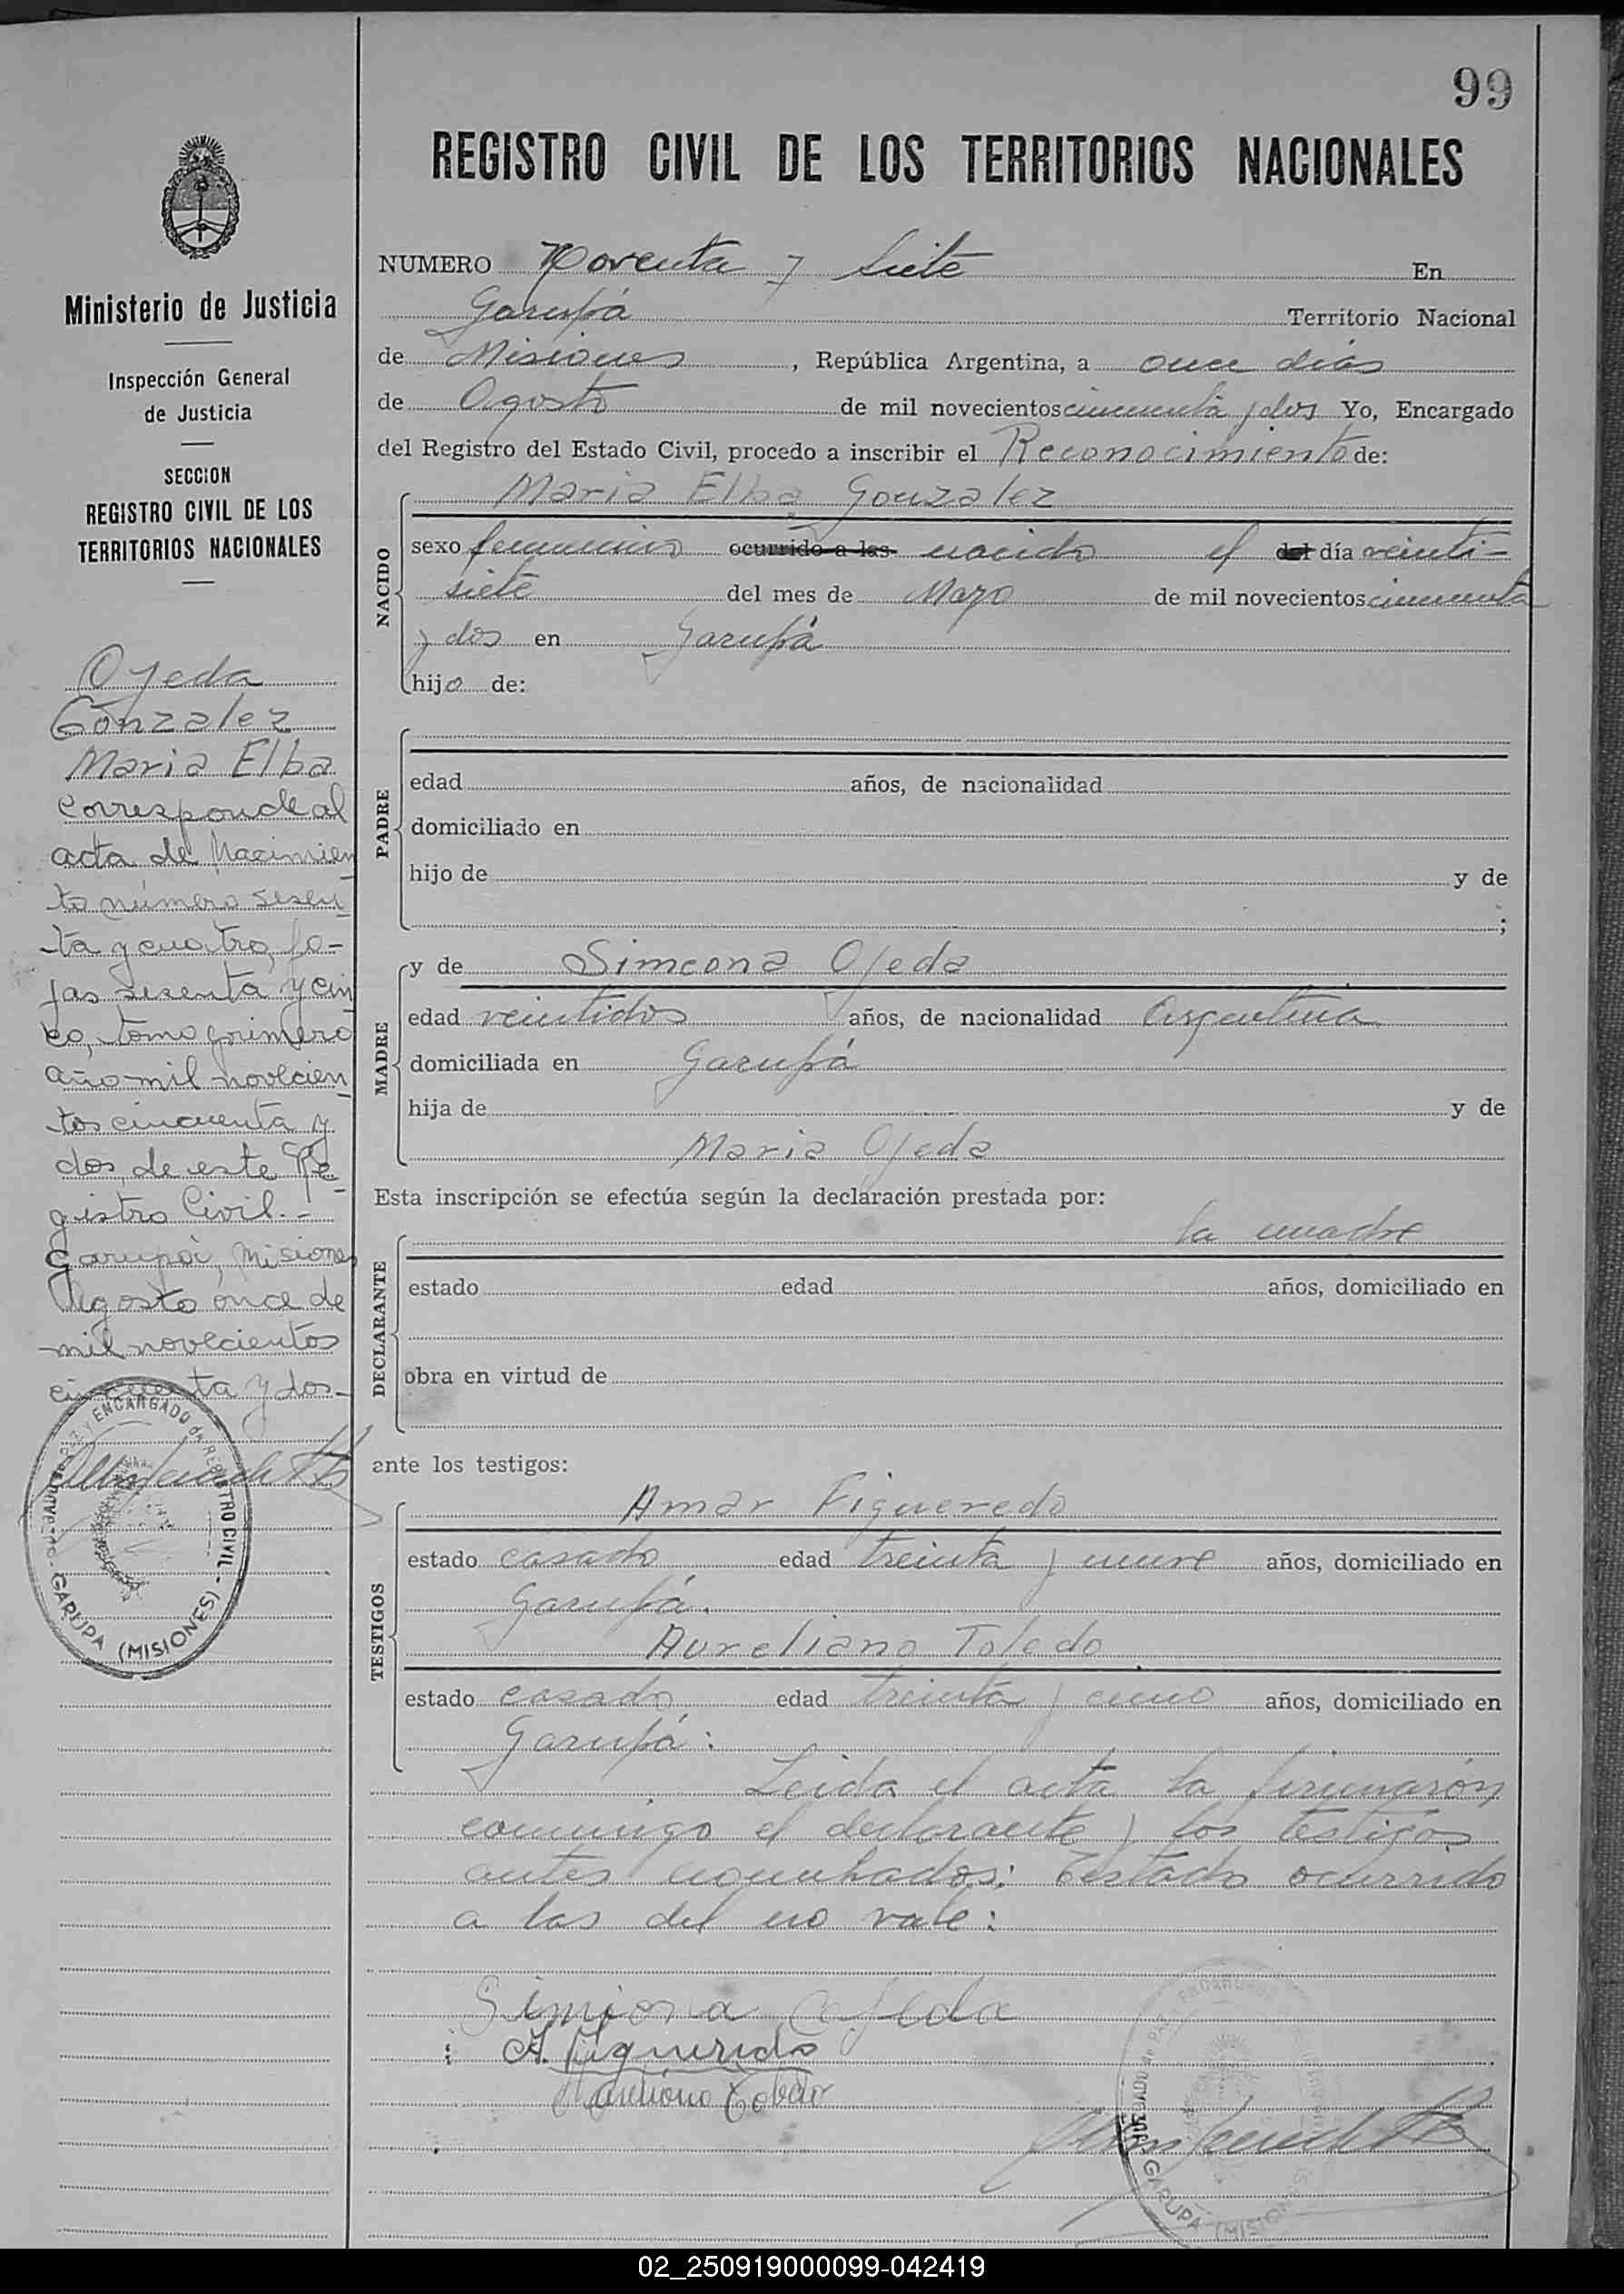 99
REGISTRO CIVIL DE LOS TERRITORIOS NACIONALES
Ministerio de Justicia
Inspección General
de Justicia
SECCION
REGISTRO CIVIL DE LOS
TERRITORIOS NACIONALES
Ojeda
Gonzalez
Maria Elba
corresponde al
acta de Nacimien
to número sesen
ta y cuatro, fo-
jas sesenta y cin
co, tomo primero
año mil novecien
tos cincuenta y
dos, de este Re
gistro Civil.-
Garupá, Misiones
Agosto once de
mil novecientos
cincuenta y dos-
ENCARGADO REGISTRO CIVIL - GARUPA (MISIONES)
NUMERO Noventa y Siete En
Garupá Territorio Nacional
de Misiones, República Argentina, a once dias
de Agosto de mil novecientos cincuenta y dos Yo, Encargado
del Registro del Estado Civil, procedo a inscribir el Reconocimiento de:
Maria Elba Gonzalez
NACIDO
sexo femenino ocurrido a las nacida el del día veinti-
siete del mes de Mayo de mil novecientos cincuenta
y dos en Garupá
hija de:
PADRE
edad años, de nacionalidad
domiciliado en
hijo de y de
;
MADRE
y de Simeona Ojeda
edad veintidos años, de nacionalidad Argentina
domiciliada en Garupá
hija de y de
Maria Ojeda
Esta inscripción se efectúa según la declaración prestada por:
DECLARANTE
la madre
estado edad años, domiciliado en
obra en virtud de
ante los testigos:
TESTIGOS
Amar Figueredo
estado casado edad treinta y nueve años, domiciliado en
Garupá.
Aureliano Toledo
estado casado edad treinta y cinco años, domiciliado en
Garupá:
Leida el acta la firmarón
conmigo el declarante y los testigos
antes nombrados: Testado ocurrido
a las del no vale:
Simiona Ojeda
A. Figueredo
Aureliano Toledo
GARUPA (MISIONES)
02_250919000099-042419